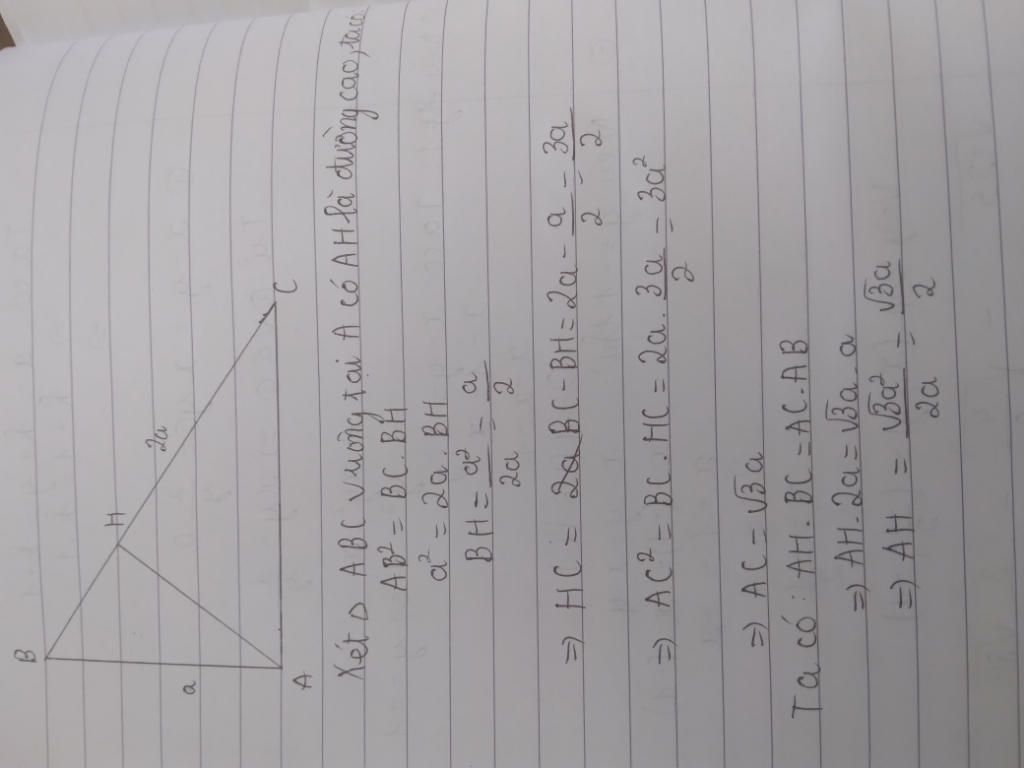 B
H
2a
a
A
C
Xét Δ ABC vuông tại A có AH là đường cao, ta có
AB² = BC.BH
a² = 2a.BH
BH = a²/2a = a/2
=> HC = BC - BH = 2a - a/2 = 3a/2
=> AC² = BC.HC = 2a.3a/2 = 3a²
=> AC = √3a
Ta có: AH.BC = AC.AB
=> AH.2a = √3a.a
=> AH = √3a²/2a = √3a/2